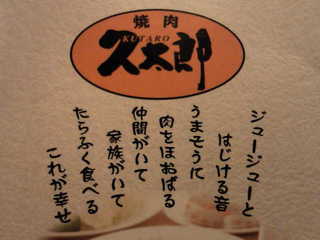 焼肉
KUTARO
久太郎
ジュージューと
はじける音
うまそうに
肉をほおばる
仲間がいて
家族がいて
たらふく食べる
これが幸せ